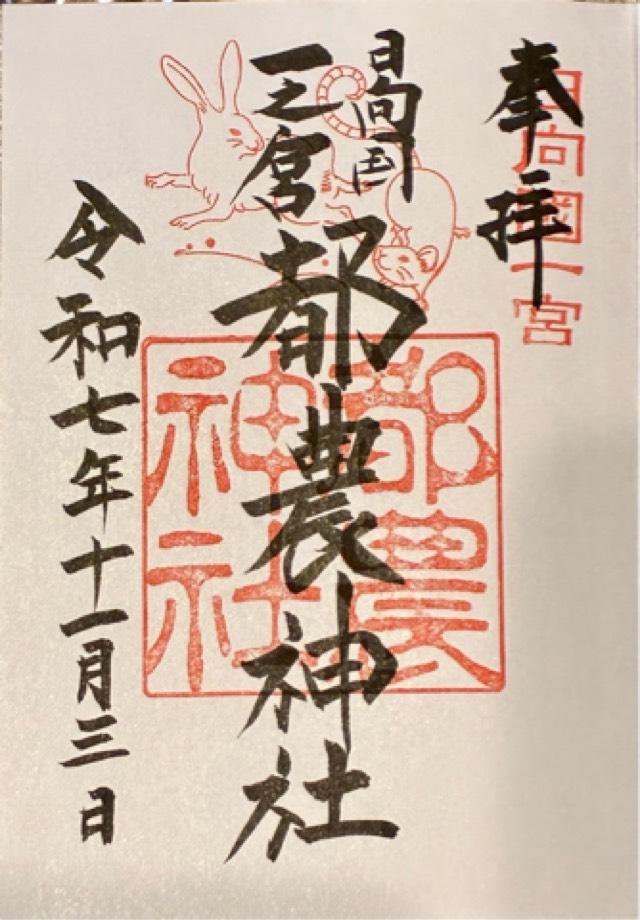 奉拝
日向國一宮
日向国
一之宮
都農神社
都農
神社
令和七年十一月三日